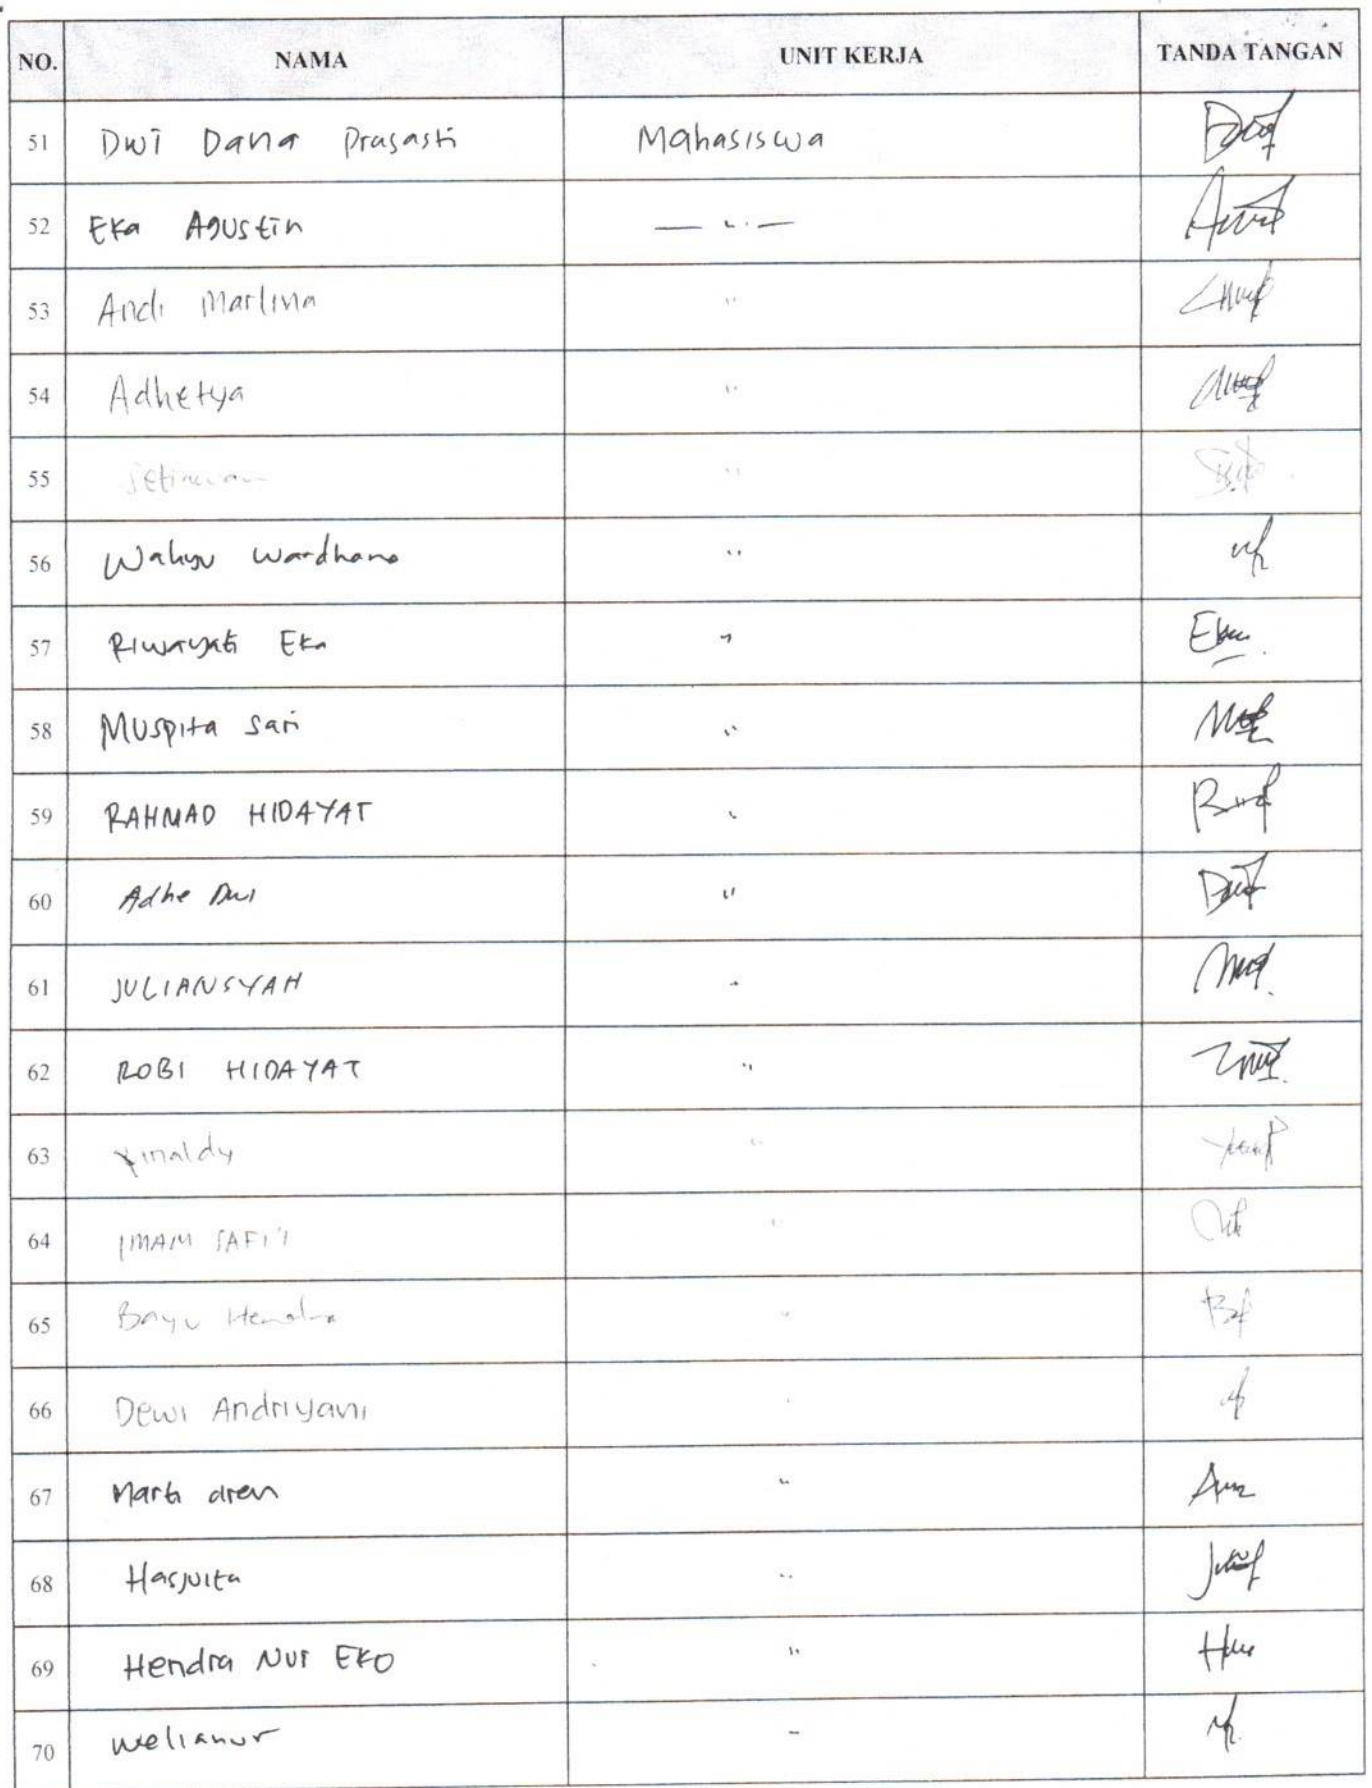 NO. NAMA UNIT KERJA TANDA TANGAN
51 Dwi Dana Prasasti Mahasiswa
52 Eka Agustin — " —
53 Andi Marlina "
54 Adhetya "
55 Setiawan "
56 Wahyu Wardhana "
57 Riwayati Eka "
58 Muspita Sari "
59 RAHMAD HIDAYAT "
60 Adhe Dwi "
61 JULIANSYAH "
62 ROBI HIDAYAT "
63 Yinaldy "
64 IMAM SAFI'I "
65 Bayu Hendra "
66 Dewi Andriyani "
67 Marti aren "
68 Hasjuita "
69 Hendra Nur EKO "
70 Welianur "